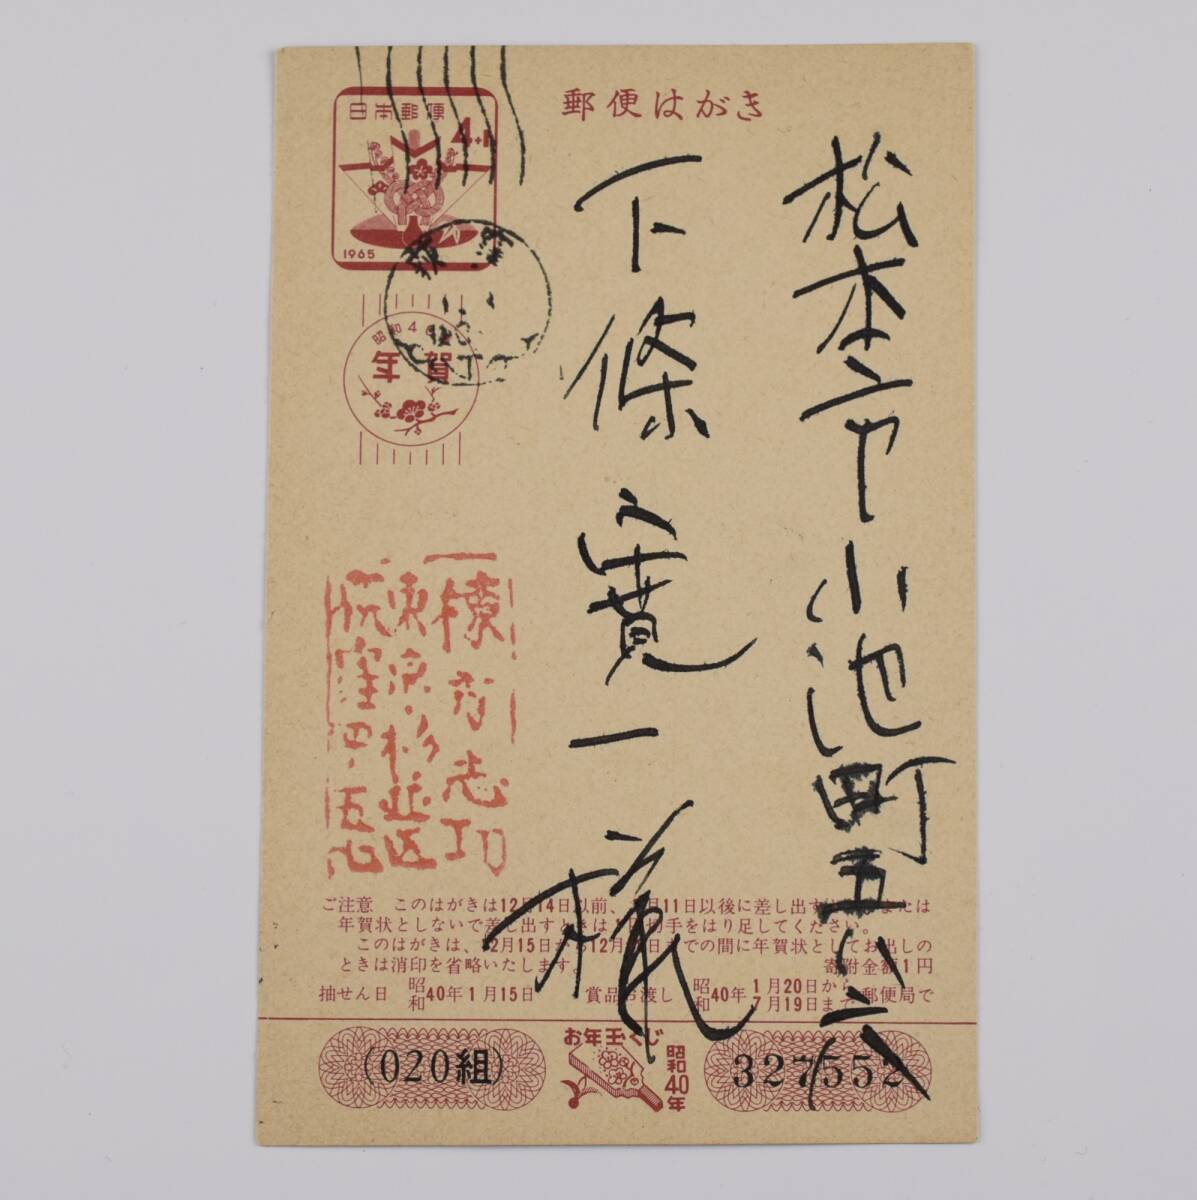 郵便はがき
日本郵便
4+1
1965
昭和40
年賀
松本市小池町五八六
下條寛一様
棟方志功
東京・杉並区
荻窪
ご注意 このはがきは12月14日以前、1月11日以後に差し出すときまたは
年賀状としないで差し出すときは1円切手をはり足してください。
このはがきは、12月15日から12月 日までの間に年賀状としてお出しの
ときは消印を省略いたします。
寄附金額1円
抽せん日 昭和40年1月15日 賞品お渡し 昭和40年 1月20日から 7月19日まで 郵便局で
(020組)
お年玉くじ
昭和40年
327552